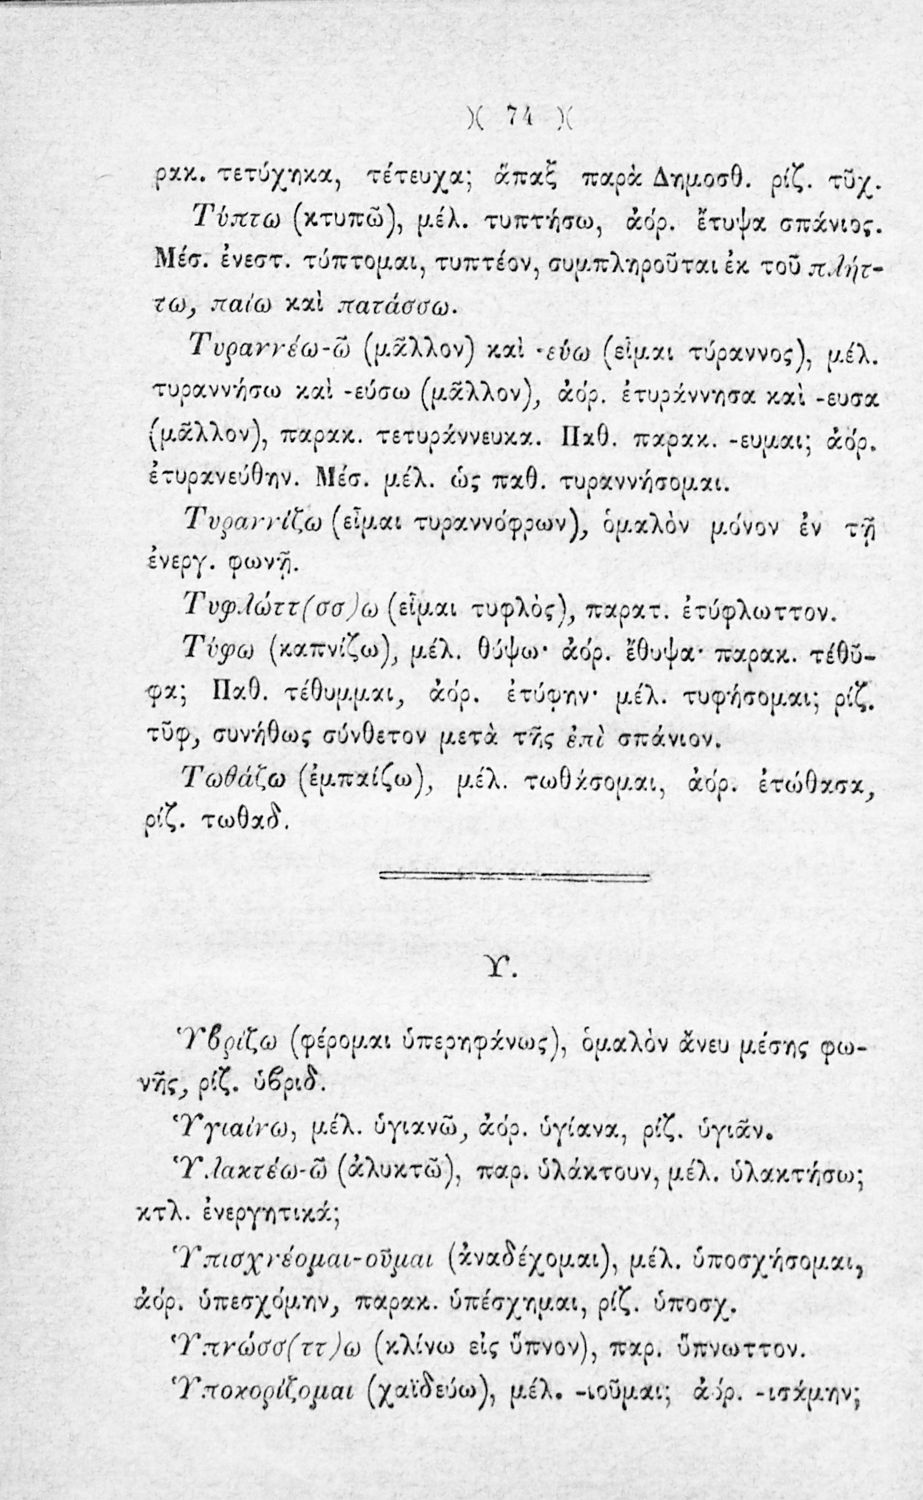 )( 74 )(
ρακ. τετύχηκα, τέτευχα; ἅπαξ παρὰ Δημοσθ. ρίζ. τῦχ.
Τύπτω (κτυπῶ), μέλ. τυπτήσω, ἀόρ. ἔτυψα σπάνιος.
Μέσ. ἐνεστ. τύπτομαι, τυπτέον, συμπληροῦται ἐκ τοῦ πλήτ-
τω, παίω καὶ πατάσσω.
Τυραννέω-ῶ (μᾶλλον) καὶ -εύω (εἶμαι τύραννος), μέλ.
τυραννήσω καὶ -εύσω (μᾶλλον), ἀόρ. ἐτυράννησα καὶ -ευσα
(μᾶλλον), παρακ. τετυράννευκα. Παθ. παρακ. -ευμαι; ἀόρ.
ἐτυρανεύθην. Μέσ. μέλ. ὡς παθ. τυραννήσομαι.
Τυραννίζω (εἶμαι τυραννόφρων), ὁμαλὸν μόνον ἐν τῇ
ἐνεργ. φωνῇ.
Τυφλώττ(σσ)ω (εἶμαι τυφλὸς), παρατ. ἐτύφλωττον.
Τύφω (καπνίζω), μέλ. θύψω· ἀόρ. ἔθυψα· παρακ. τέθῦ-
φα; Παθ. τέθυμμαι, ἀόρ. ἐτύφην· μέλ. τυφήσομαι; ρίζ.
τῦφ, συνήθως σύνθετον μετὰ τῆς ἐπὶ σπάνιον.
Τωθάζω (ἐμπαίζω), μέλ. τωθάσομαι, ἀόρ. ἐτώθασα,
ρίζ. τωθαδ.
Υ.
Ὑβρίζω (φέρομαι ὑπερηφάνως), ὁμαλὸν ἄνευ μέσης φω-
νῆς, ρίζ. ὑβριδ.
Ὑγιαίνω, μέλ. ὑγιανῶ, ἀόρ. ὑγίανα, ρίζ. ὑγιᾶν.
Ὑλακτέω-ῶ (ἀλυκτῶ), παρ. ὑλάκτουν, μέλ. ὑλακτήσω;
κτλ. ἐνεργητικά;
Ὑπισχνέομαι-οῦμαι (ἀναδέχομαι), μέλ. ὑποσχήσομαι,
ἀόρ. ὑπεσχόμην, παρακ. ὑπέσχημαι, ρίζ. ὑποσχ.
Ὑπνώσσ(ττ)ω (κλίνω εἰς ὕπνον), παρ. ὕπνωττον.
Ὑποκορίζομαι (χαϊδεύω), μέλ. -ιοῦμαι; ἀόρ. -ισάμην;